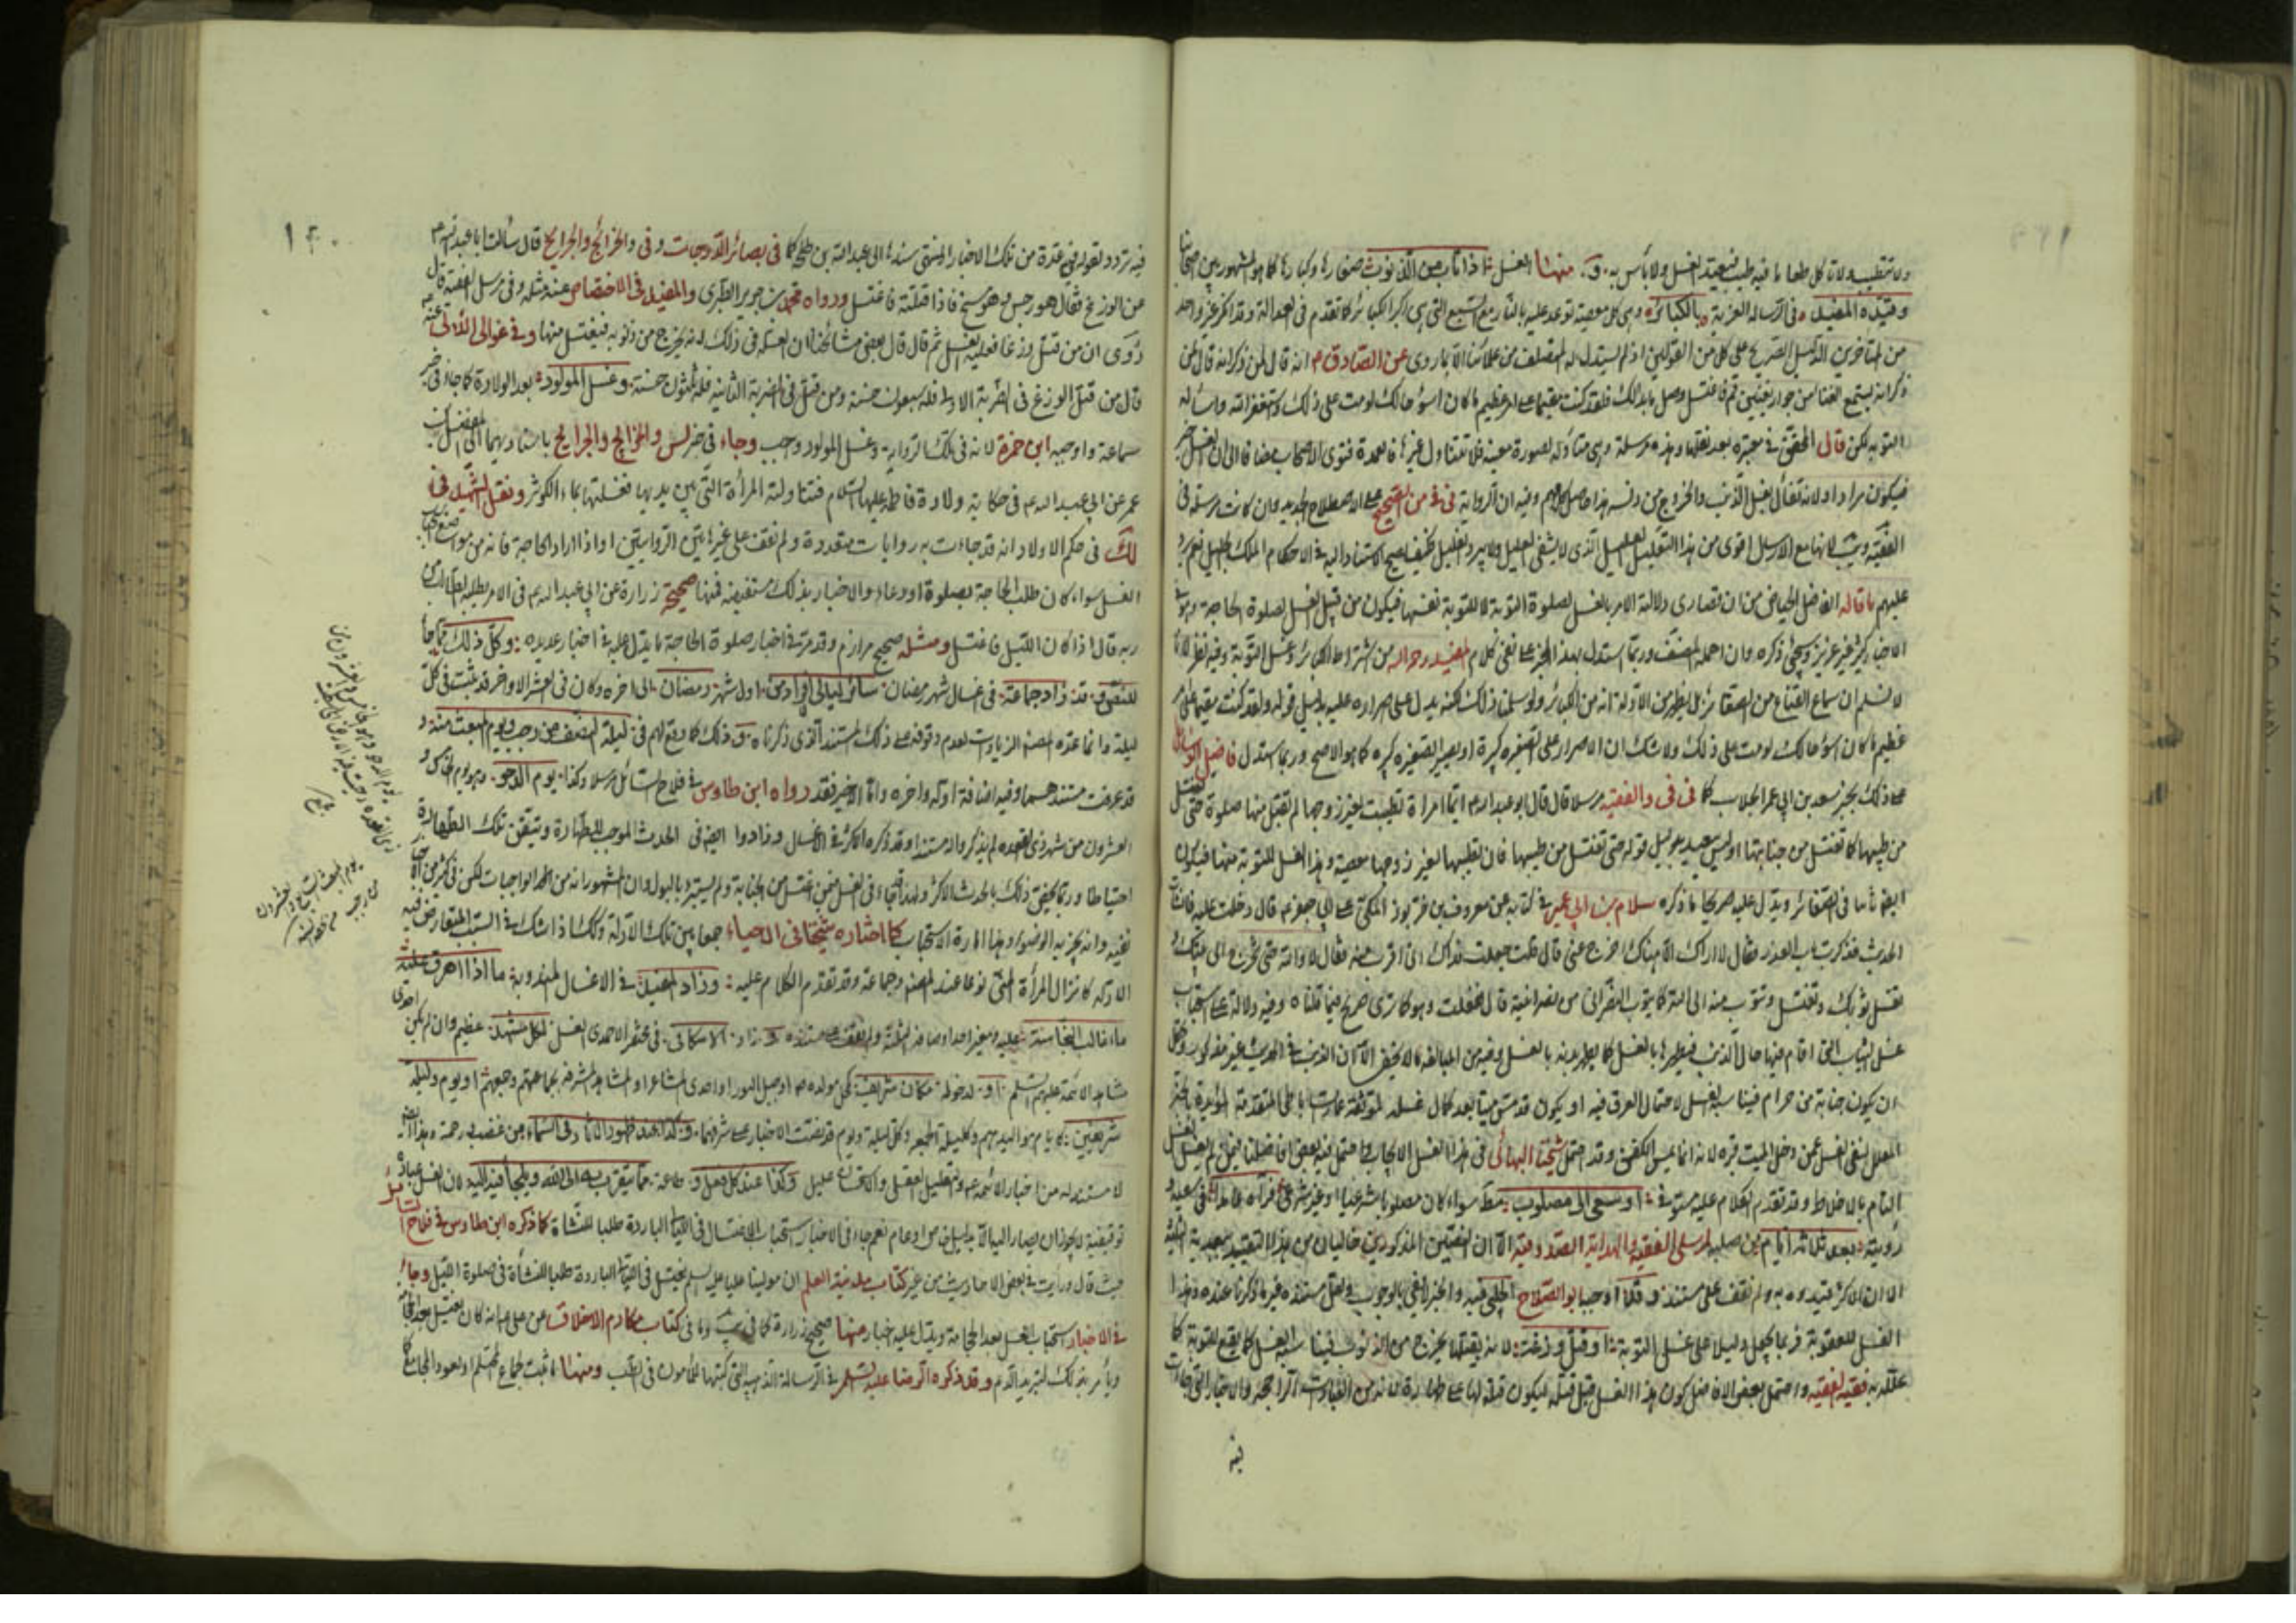 ولا تتطيب ولا تأكل طعاما فيه طيب فتعيد الغسل ولا بأس به و منها الغسل اذا تاب من الذنوب صغارها وكبارها كما هو المشهور بين اصحابنا
وقيده المفيد في الرسالة العزية بالكبائر وهي كل معصية توعد عليه بالنار مع السبع التي هي اكبر الكبائر كما تقدم في العدالة وقد انكر غير واحد
من المتأخرين الدليل الصريح على كل من القولين اذ لم يستدل له المصنف من علمائنا الا بما روي عن الصادق م انه قال لمن ذكر انه
يستمع الغناء من جوار يغنين قم فاغتسل وصل ما بدا لك فلقد كنت مقيما على امر عظيم ما كان اسوء حالك لو مت على ذلك واستغفر الله واسأله
التوبة لكن قال المحقق في معتبره بعد نقلها وهذه مرسلة وهي متناولة لصورة معينة فلا تتناول غيرها فالعمدة فتوى الاصحاب مضافا الى ان الغسل خير
فيكون مرادا ولانه تفأل بغسل الذنب والخروج من دنسه هذا حاصل كلامهم وفيه ان الرواية في في من الصحيح على الاصطلاح الجديد وان كانت مرسلة في
الفقيه و يب لانها مع الارسال اقوى من هذا التعليل العليل الذي لا يشفي العليل ولا يبرد الغليل فكيف يصح الاستناد اليه في الاحكام
عليهم ما قاله الفاضل من ان قصارى دلالته الامر بالغسل لصلوة التوبة لا للتوبة نفسها فيكون من قبيل الغسل لصلوة الحاجة
ذكره وان اهمله المصنف وربما استدل بهذا الخبر على نفي كلام المفيد رحمه الله من اشتراط الكبائر في غسل التوبة وفيه نظر لانا
لا نسلم ان سماع الغناء من الصغائر بل يظهر من الادلة انه من الكبائر ولو سلمنا ذلك لكنه يدل على اصراره عليه بدليل قوله ولقد كنت مقيما على امر
عظيم ما كان اسوء حالك لو مت على ذلك ولا شك ان الاصرار على الصغيرة كبيرة او يصير الصغيرة كبيرة كما هو الاصح وربما استدل فاضل الوسائل
على ذلك بخبر سعد بن ابي عمر الجلاب كما في في والفقيه مرسلا قال قال ابو عبد الله م ايما امرأة تطيبت لغير زوجها لم تقبل منها صلوة حتى تغتسل
من طيبها كما تغتسل من جنابتها وليس ببعيد بدليل قوله حتى تغتسل من طيبها فان تطيبها لغير زوجها معصية وهذا الغسل للتوبة منها فيكون
ايضا ثابتا في الصغائر ويدل عليه صريحا ما ذكره سلام بن ابي عمير في كتابه عن معروف بن خربوذ المكي عن ابي جعفر م قال دخلت عليه فانشأت
الحديث فذكرت باب العذر فقال لا اراك الا هناك اخرج عني قال قلت جعلت فداك اني اقرب منه فقال لا والله حتى تخرج الى بيتك
تغسل ثوبك وتغتسل وتتوب منه الى الله كما يتوب النصراني من نصرانيته قال ففعلت وهو كما ترى صريح فيما قلناه وفيه دلالة على استحباب
غسل الثياب التي اقام فيها حال الذنب فيطهرها بالغسل كما يطهر بدنه بالغسل وفيه من المبالغة ما لا يخفى الا ان الذنب في الحديث غير مذكور ويحتمل
ان يكون جنابة من حرام فيناسبه الغسل لاحتمال العرق فيه او يكون قد مس ميتا بعد كمال غسله لموثقة عمار الساباطي المتقدمة المؤيدة بالخبر
المعلل بنفي الغسل عمن دخل الميت قبره لانه انما يمس الكفن وقد احتمل شيخنا البهائي في هذا الغسل الايجاب كما احتمل فيه بعض افاضلنا
التام بالاخلاط وقد تقدم الكلام عليه مستوفى او سعى الى مصلوب مط سواء كان مصلوبا شرعيا او غير شرعي فرآه عامدا في
رؤيته بعد ثلاثة ايام من صلبه لمرسل الفقيه والهداية الصدوقية الا ان الفقيهين المذكورين خاليان من هذا التقييد ببعدية الثلثة
الا ان الاكثر قيدوه به ولم نقف على مستند و قلما اوجب ابو الصلاح الحلبي فيه واخبر الاخفى بالوجوب ولعل مستنده غير ما ذكرنا عنده وهذا
الغسل للعقوبة فربما يجعل دليلا على غسل التوبة او قتل وزغة لانه بقتلها يخرج من الذنوب فيناسبه الغسل كما يقع للتوبة كما
علله به فقيه الفقيه واحتمل بعض الافاضل كون هذا الغسل قبل قتله ليكون قتله لها على طهارة لانه من العبادات الراجحة والاخبار التي جاءت
فيه
١٢٠
فيه تردد لقوله في عدة من تلك الاخبار المنتهي سندها الى عبد الله بن طلحة كما في بصائر الدرجات وفي في والخرائج والجرايح قال سألت ابا عبد الله م
عن الوزغ فقال هو رجس وهو مسخ فاذا قتلته فاغتسل ورواه محمد بن جرير الطبري والمفيد في الاختصاص عنه مثله وفي مرسل الفقيه قال
روي ان من قتل وزغا فعليه الغسل ثم قال قال بعض مشائخنا ان العلة في ذلك انه يخرج من ذنوبه فيغتسل منها وفي غوالي اللآلي عنه
قال من قتل الوزغ في الضربة الاولى فله سبعون حسنة ومن قتل في الضربة الثانية فله ثلثون حسنة وغسل المولود بعد الولادة كما جاء في خبر
سماعة واوجبه ابن حمزة لانه في تلك الرواية وغسل المولود وجب وجاء في خبر لس والخرايج والجرايح باسناديهما الى المفضل بن
عمر عن ابي عبد الله م في حكاية ولادة فاطمة عليها السلام فتناولتها المرأة التي بين يديها فغسلتها بماء الكوثر ونقل الشهيد في
لك في حكم الاولاد انه قد جاءت به روايات متعددة ولم نقف على غير هاتين الروايتين او اذا اراد الحاجة فانه من مواضع استحباب
الغسل سواء كان طلب الحاجة بصلوة او دعاء والاخبار بذلك مستفيضة فمنها صحيح زرارة عن ابي عبد الله م في الامر يطلبه الطالب من
ربه قال اذا كان الليل فاغتسل ومثله صحيح مرازم وقد مر في اخبار صلوة الحاجة ما يدل عليه في اخبار عديدة وكل ذلك مما جاء
للنص و قد زاد جماعة في اغسال شهر رمضان سائر ليالي افراده من اول شهر رمضان الى اخره وكان في العشر الاواخر قد ثبت في كل
ليلة وانما عده المصنف من الزيادات لعدم وقوفه على ذلك المستند الذي ذكرناه و ذلك كما وقع لهم في ليلة النصف من رجب ويوم المبعث منه و
قد عرفت مستندهما وفيه اضافة اوله واخره واما الاخير فقد رواه ابن طاوس في فلاح السائل مرسلا وكذا يوم الدحو وهو يوم الخامس و
العشرون من شهر ذي القعدة لم يذكروا له مستندا وقد ذكره الاكثر في الاغسال وزادوا ايضا في الحدث الموجب للطهارة وتيقن تلك الطهارة
احتياطا وربما يحقق ذلك بالحدث الاكبر ولهذا جاء في الغسل فيمن اغتسل من الجنابة ولم يستبرء بالبول وان المشهور انه من الواجبات لكن في كثير من الاخبار
نفيه وانه يجزيه الوضوء وهذا امارة الاستحباب كما اختاره شيخنا في الاحياء جمعا بين تلك الادلة وكذلك اذا شك في السبب المتعارض فيه
الادلة كانزال المرأة المني نوعا عند المصنف وجماعة وقد تقدم الكلام عليه وزاد المفيد في الاغسال المندوبة ما اذا اهرق عليه
ماء غالب النجاسة عليه ومغير احد اوصافه الثلثة ولم نقف على مستنده و زاد الاسكافي في مختصر الاحمدي الغسل لكل مشهد عظيم وان لم يكن احدى
مشاهد الائمة عليهم السلم او لدخوله مكان شريف كمحل مولده م او جبل النور او احدى المشاعر او المشاهد المشرفة بجماعتهم وجمعتهم او يوم وليلة
شريفين كايام مواليدهم وكليلة الجمعة وكل ليلة ويوم قد نصت الاخبار على شرفهما وكذا عند ظهور الآثار في السماء من غضب او رحمة وهذا ايضا
لا مستند له من اخبار الائمة م والتعليل العقلي والاستحسان عليل وكذا عند كل فعل وطاعة مما يتقرب به الى الله ويلجأ فيه اليه لان الغسل عبادة
توقيفية لا يجوز ان يصار اليها الا بدليل خاص او عام نعم جاء في الاخبار استحباب الاغتسال في الليالي الباردة طلبا للنشاة كما ذكره ابن طاوس في فلاح السائل
حيث قال ورأيت في بعض الاحاديث من غير كتاب مدينة العلم ان مولينا عليا عليه السلم يغتسل في الليالي الباردة طلبا للنشأة في صلوة الليل وجاء
في الاخبار استحباب الغسل بعد الحجامة ويدل عليه اخبار منها صحيح زرارة كما في يب وما في كتاب مكارم الاخلاق عن علي م انه كان يغتسل بعد الحجامة
ويأمر بذلك لتبريد الدم وقد ذكره الرضا عليه السلم في الرسالة الذهبية التي كتبها للمأمون في الطب ومنها ما ثبت لجماع المحتلم او لعود المجامع كما
يوم الدحو هو الخامس والعشرون من
ذي القعدة
يوم المبعث السابع والعشرون
من رجب منه